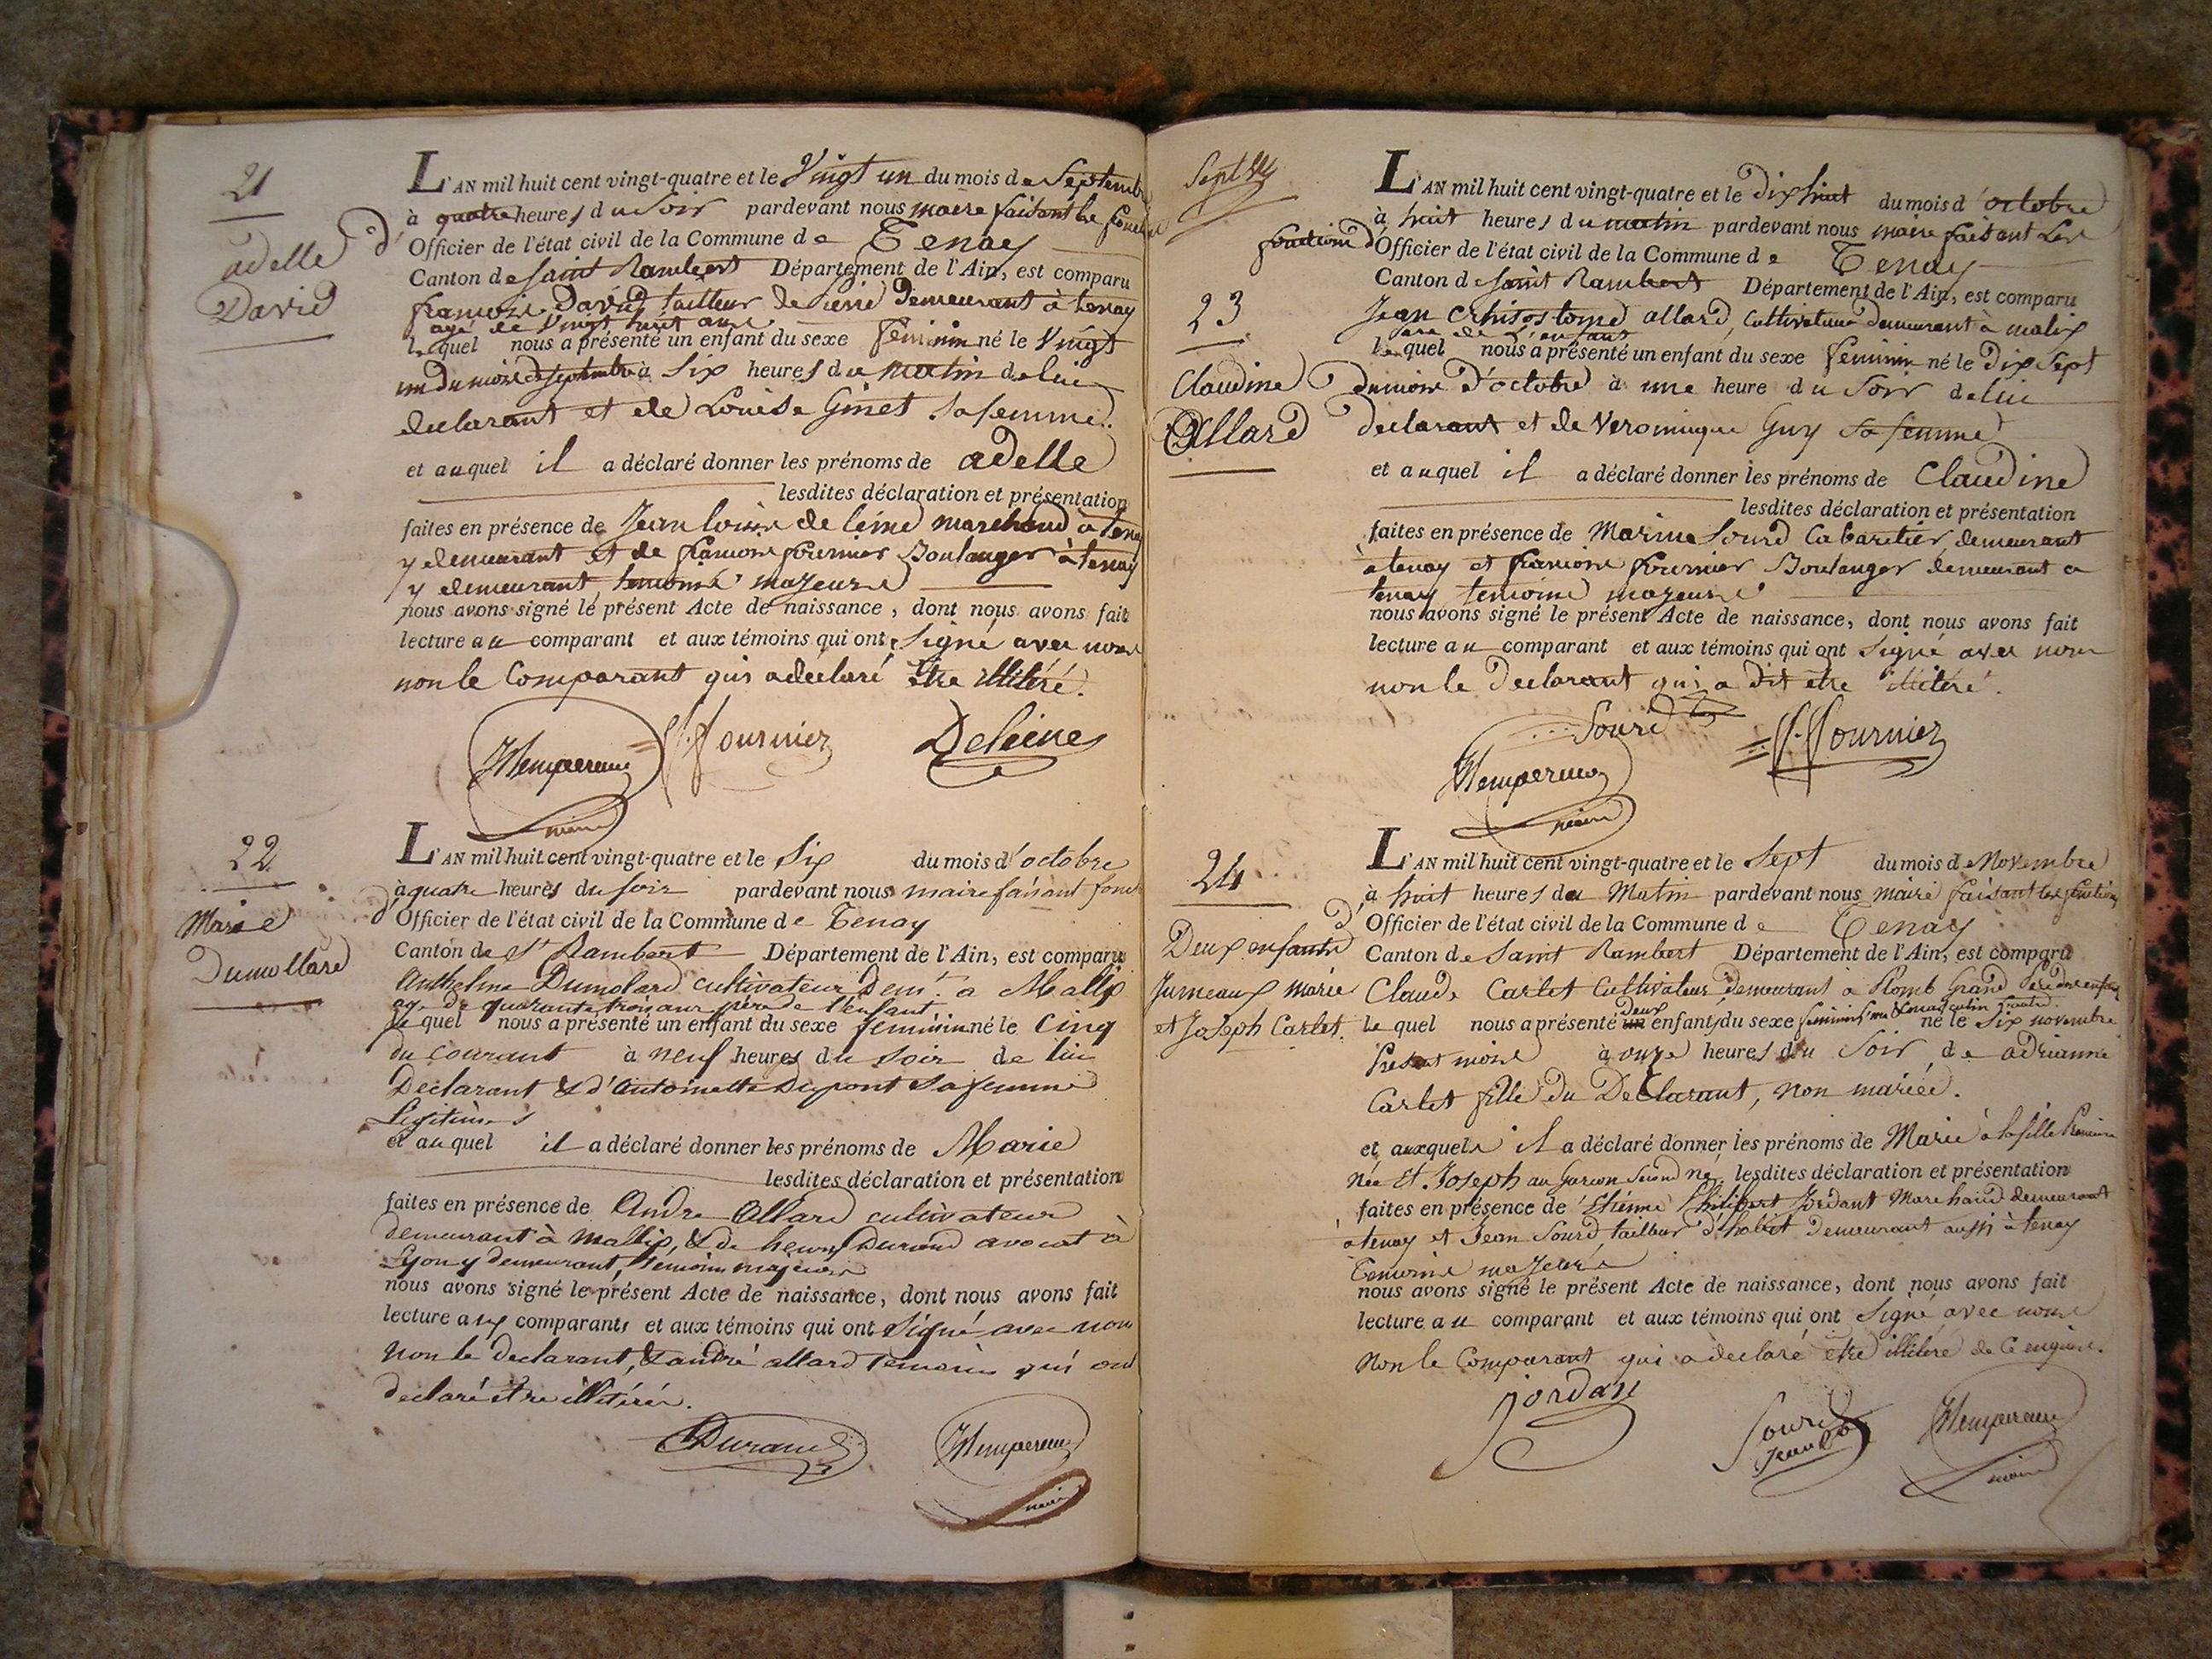 21
adelle
David
L'AN mil huit cent vingt-quatre et le Vingt un du mois de Septemb
à quatre heures du Soir pardevant nous maire faisant les
d' Officier de l'état civil de la Commune de Tenay
Canton de Saint Rambert Département de l'Ain, est comparu
francois David tailleur de pierre demeurant à tenay
agé de Vingt huit ans
lequel nous a présenté un enfant du sexe feminin né le Vingt
un du mois de septembre à Six heures du matin de lui
declarant et de Louise Ginet sa femme.
et auquel il a déclaré donner les prénoms de adelle
lesdites déclaration et présentation
faites en présence de Jean louis de leine marchand à tenay
y demeurant et de francois fournier Boulanger à tenay
y demeurant temoins majeurs
nous avons signé le présent Acte de naissance, dont nous avons fait
lecture au comparant et aux témoins qui ont Signé avec nous
non le Comparant qui a déclaré être illitéré.
fournier Deleine
maire
22
Marie
Dumollard
L'AN mil huit cent vingt-quatre et le Six du mois d'octobre
à quatre heures du soir pardevant nous maire faisant fonct
d' Officier de l'état civil de la Commune de Tenay
Canton de St Rambert Département de l'Ain, est comparu
Anthelme Dumolard cultivateur Demt. a Mallix
agé de quarante trois ans père de l'enfant
lequel nous a présenté un enfant du sexe feminin né le Cinq
du courant à neuf heures du soir de lui
Declarant & d'Antoinette Dupont sa femme
Legitime
et auquel il a déclaré donner les prénoms de Marie
lesdites déclaration et présentation
faites en présence de André Allard cultivateur
demeurant à Mallix, & de henry Durand avocat à
Lyon y demeurant, temoins majeurs
nous avons signé le présent Acte de naissance, dont nous avons fait
lecture aux comparants et aux témoins qui ont Signé avec nous
Non le declarant, & andré allard temoin qui ont
declaré être illitérés.
Durand
maire
Sept
23
Claudine
Allard
L'AN mil huit cent vingt-quatre et le Dix huit du mois d'octobre
à huit heures du matin pardevant nous maire faisant Les
fonctions d' Officier de l'état civil de la Commune de Tenay
Canton de Saint Rambert Département de l'Ain, est comparu
Jean Crhisostome allard, Cultivateur demeurant à malix
pere de l'enfant
lequel nous a présenté un enfant du sexe feminin né le Dix Sept
du mois d'octobre à une heure du Soir de lui
Declarant et de Veronique Guy sa femme
et auquel il a déclaré donner les prénoms de Claudine
lesdites déclaration et présentation
faites en présence de Marin Sourd Cabaretier demeurant
à tenay et francois fournier Boulanger demeurant a
tenay temoins majeurs
nous avons signé le présent Acte de naissance, dont nous avons fait
lecture au comparant et aux témoins qui ont Signé avec nous
non le Declarant qui a dit etre illitéré.
Sourd fournier
maire
24
Deux enfants
Jumeaux marie
et Joseph Carlet.
L'AN mil huit cent vingt-quatre et le Sept du mois de Novembre
à huit heures du Matin pardevant nous maire faisant les fonctions
d' Officier de l'état civil de la Commune de Tenay
Canton de Saint Rambert Département de l'Ain, est comparu
Claude Carlet Cultivateur demeurant à Plomb Grand Père des enfans
lequel nous a présenté deux enfants du sexe feminin l'un & masculin l'autre né le Six novembre
Present mois à onze heures du Soir de adrianne
Carlet fille du Declarant, non mariée.
et auxquels il a déclaré donner les prénoms de Marie à la fille Premiere
née Et Joseph au Garcon second né. lesdites déclaration et présentation
faites en présence de Etienne Philibert Jordant Marchand demeurant
à tenay et Jean Sourd, tailleur d'habit Demeurant aussi à tenay
Temoins majeurs
nous avons signé le présent Acte de naissance, dont nous avons fait
lecture au comparant et aux témoins qui ont Signé avec nous
Non le Comparant qui a déclaré etre illitéré de ce enquis.
jordan
Sourd
Jean
maire